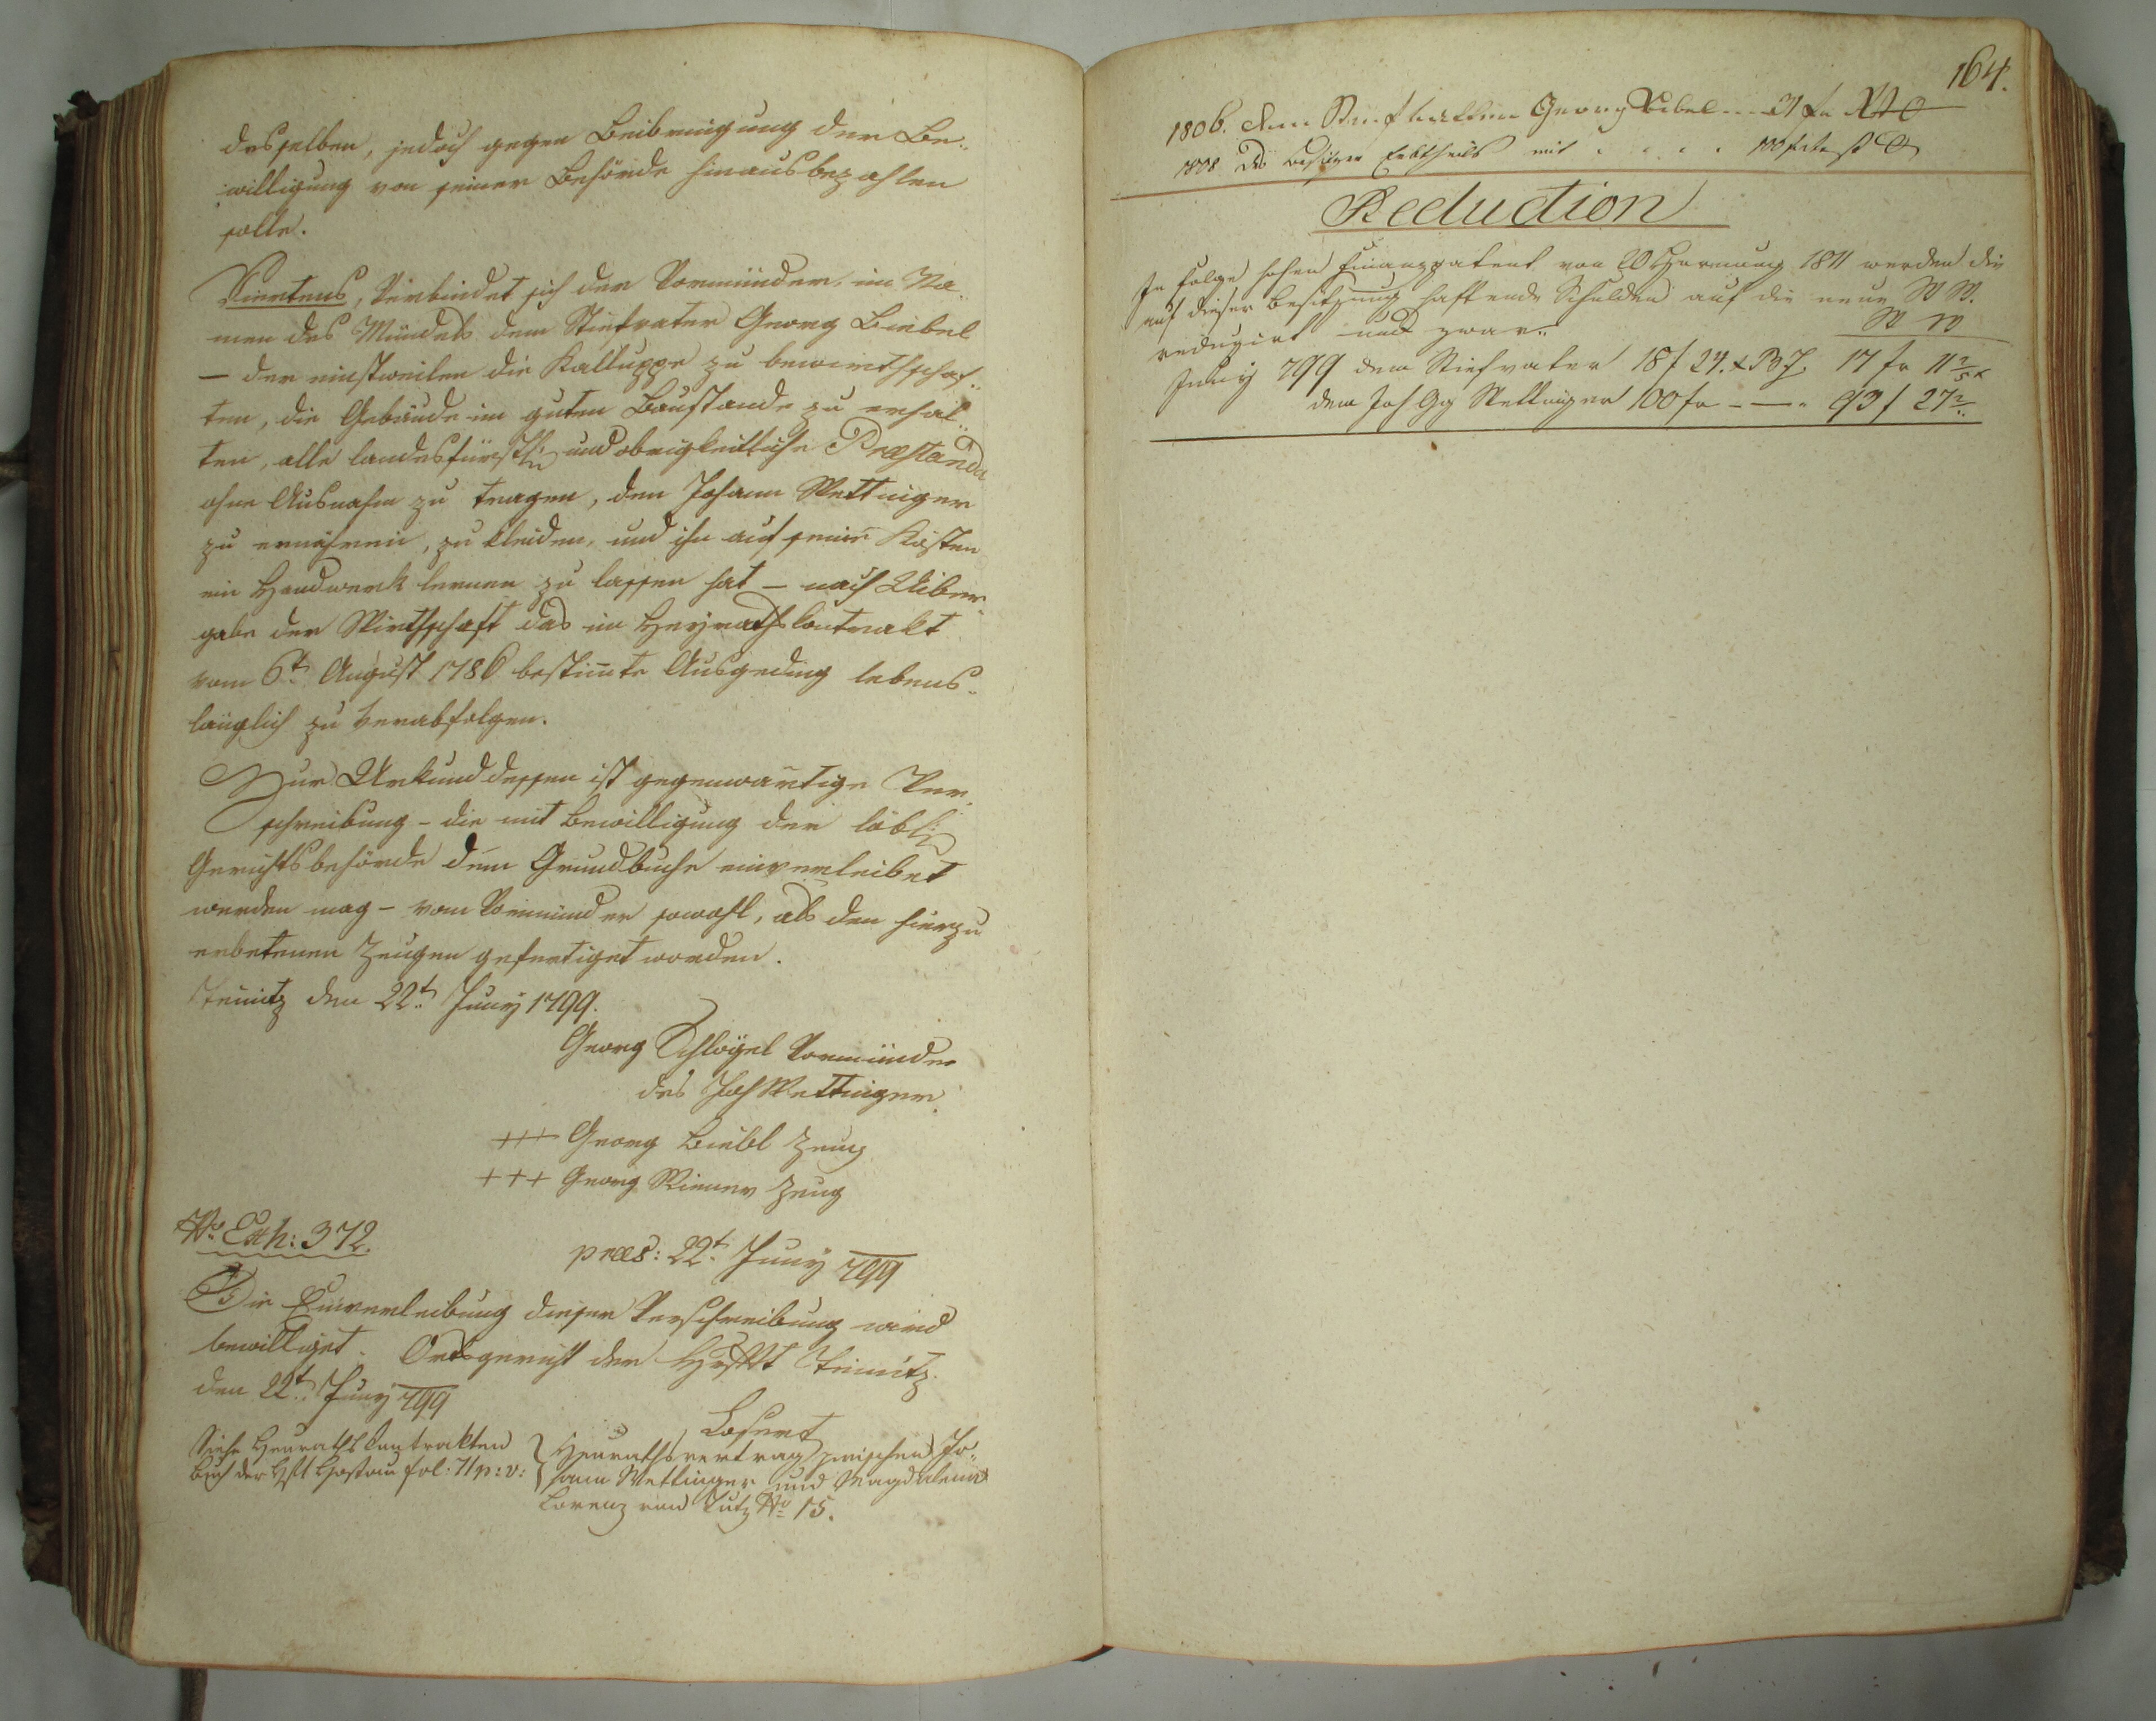 desselben, jedoch gegen Beibringung der Be„
„willigung von seiner Behörde hinausbezahlen
solle.
Viertens, Verbindet sich der Vormünder, im Na„
men des Mündels dem Stiefvater Georg Biebel
– der einstweilen die Kalluppe zu bewirthschaf„
ten, die Gebäude im guten Baustande zu erhal„
ten, alle landesfürstl: und obrigkeitliche Præstanda
ohne Ausnahm zu tragen, den Johann Wettinger
zu ernähren, zu kleiden, und ihn auf seine Kösten
ein Handwerk lernen zu lassen hat – nach Uiber„
gabe der Wirthschaft das im Heyrathskontrakt
vom 6t August 1786 bestimte Ausgeding lebens„
länglich zu verabfolgen.
Zur Urkund dessen ist gegenwärtige Ver„
schreibung – die mit Bewilligung der löbl:
Gerichtsbehörde dem Grundbuche einverleibet
werden mag – vom Vormünder sowohl, als den hierzu
erbetenen Zeugen gefertiget worden.
den 22t Juny 1799.
Georg Schlögel Vormünder
des Joh Wettinger.
+++ Georg Biebl Zeug
+++ Georg Wiener Zeug
No Exh: 372.
præs: 22t Juny 799
Die Einverleibung dieser Verschreibung wird
bewilliget. Ortsgericht der
den 22t Juny 799
Losert
Siehe Heurathskontrakten
Buch der Hft Hostau fol: 71 p: v:
Heurathsvertrag zwischen Jo„
hann Wettinger und Magdalena
Lorenz von No 15.
164.
1806. dem Stiefvattern Georg Bibel --- 31 fr
1808 Erbtheils mit . . . . 100
Reduction
In Folge hohen Finanzpatent von 20 Hornung 1811 werden die
auf dieser Besitzung haftende Schulden auf die neue W W.
reduzirt und zwar„
W W
Juny 799 dem Stiefvater 18 f 24. x B Z. 17 fr 11 2/5 x
dem Joh Gg Wettinger 100 fr - — „ 93 f 27 2/„